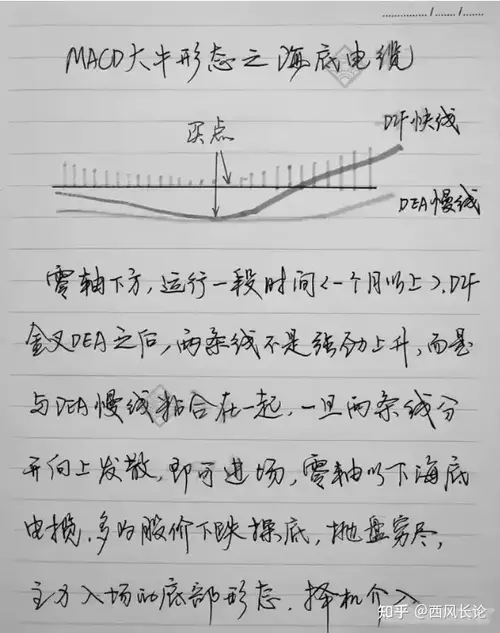 MACD大牛形态之海底电缆
买点
DIF快线
DEA慢线
零轴下方,运行一段时间<一个月以上>.DIF
金叉DEA之后,两条线不是强劲上升,而是
与DEA慢线粘合在一起,一旦两条线分
开向上发散,即可进场,零轴以下海底
电揽.多为股价下跌探底,抛盘穷尽,
主力入场的底部形态.择机介入
知乎 @西风长论